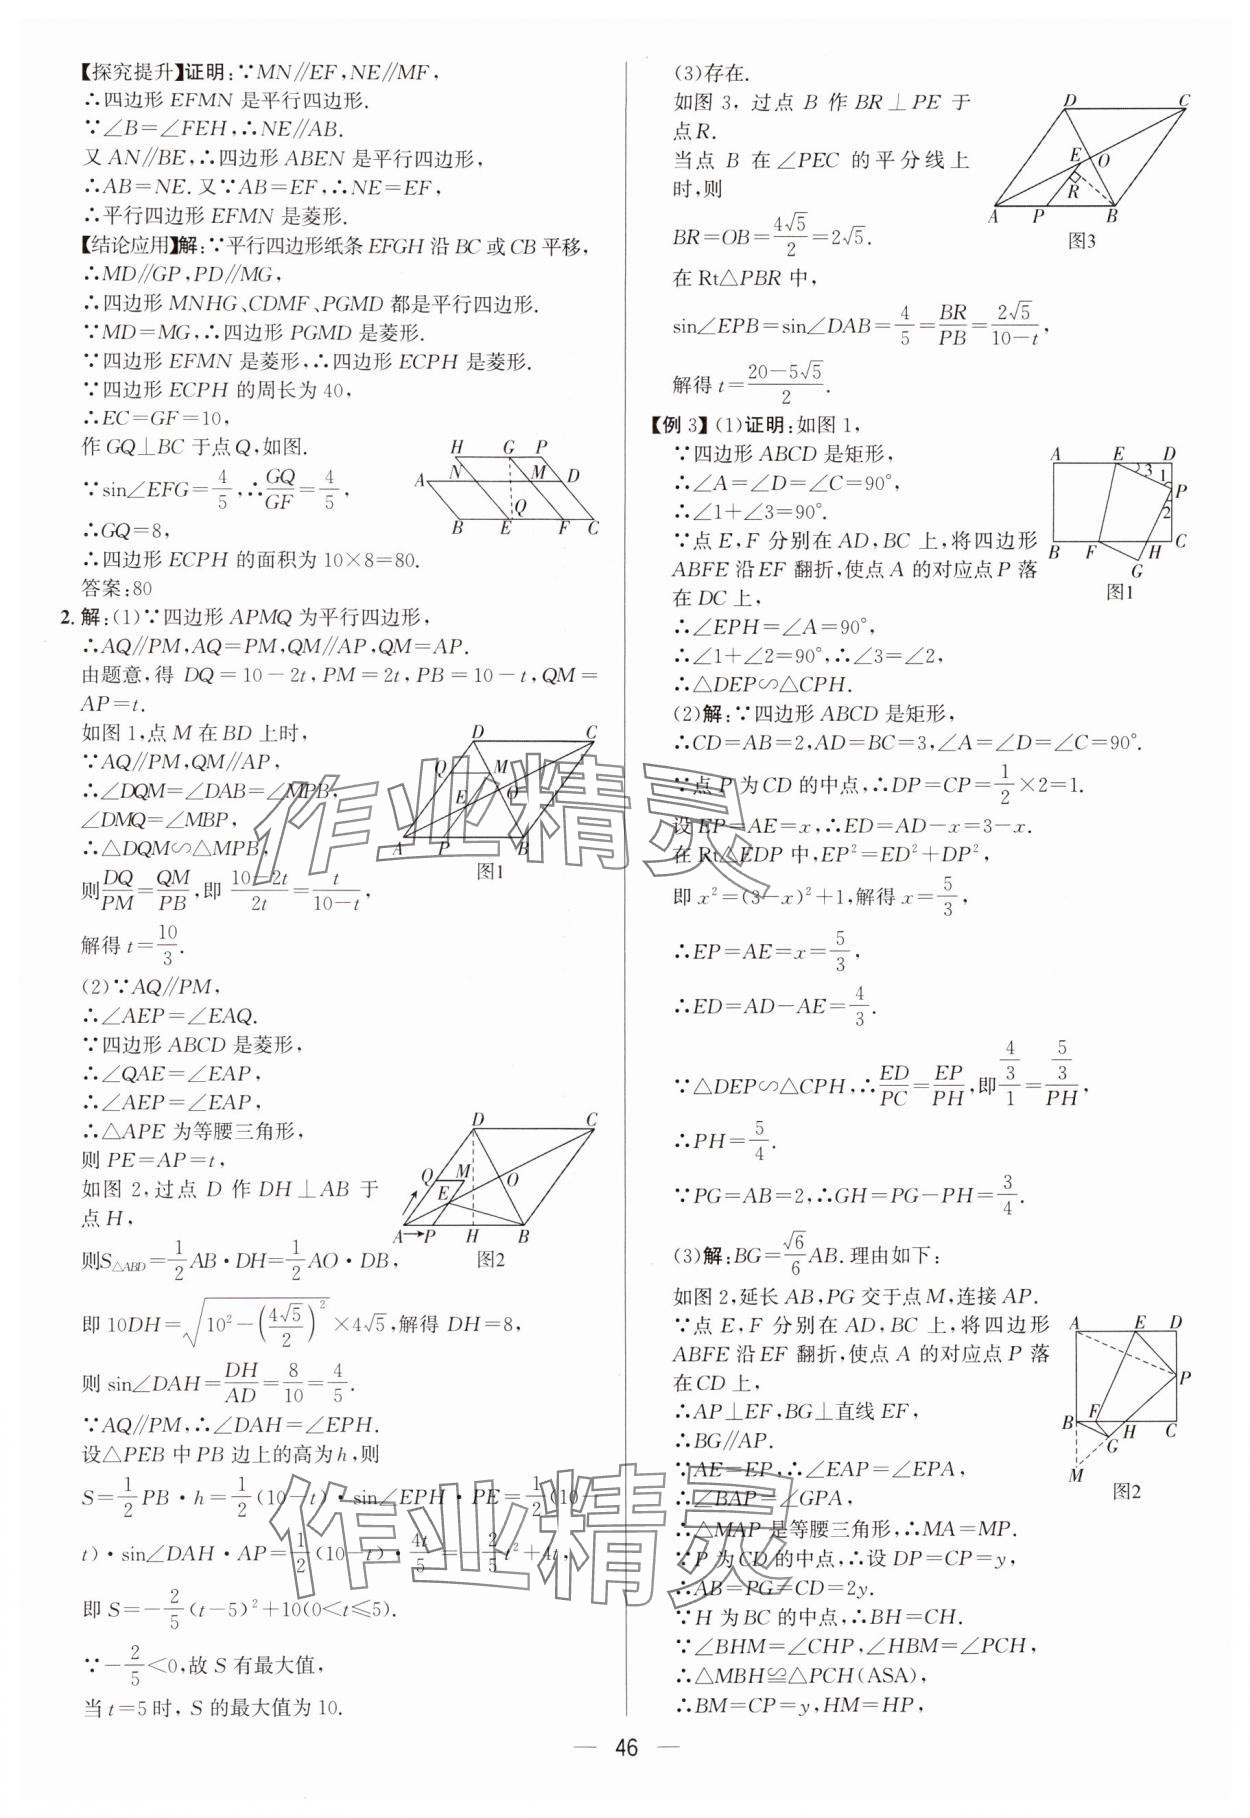 【探究提升】证明:∵MN∥EF,NE∥MF,
∴四边形 EFMN 是平行四边形.
∵∠B=∠FEH,∴NE∥AB.
又 AN∥BE,∴四边形 ABEN 是平行四边形,
∴AB=NE. 又∵AB=EF,∴NE=EF,
∴平行四边形 EFMN 是菱形.
【结论应用】解:∵平行四边形纸条 EFGH 沿 BC 或 CB 平移,
∴MD∥GP,PD∥MG,
∴四边形 MNHG、CDMF、PGMD 都是平行四边形.
∵MD=MG,∴四边形 PGMD 是菱形.
∵四边形 EFMN 是菱形,∴四边形 ECPH 是菱形.
∵四边形 ECPH 的周长为 40,
∴EC=GF=10,
作 GQ⊥BC 于点 Q,如图.
∵sin∠EFG=4/5,∴GQ/GF=4/5,
∴GQ=8,
∴四边形 ECPH 的面积为 10×8=80.
答案:80
H G P
A N M D
Q
B E F C
2. 解:(1)∵四边形 APMQ 为平行四边形,
∴AQ∥PM,AQ=PM,QM∥AP,QM=AP.
由题意,得 DQ=10-2t,PM=2t,PB=10-t,QM=
AP=t.
如图 1,点 M 在 BD 上时,
∵AQ∥PM,QM∥AP,
∴∠DQM=∠DAB=∠MPB,
∠DMQ=∠MBP,
∴△DQM∽△MPB,
则DQ/PM=QM/PB,即 (10-2t)/2t=t/(10-t),
解得 t=10/3.
D C
Q M
E O
A P B
图1
(2)∵AQ∥PM,
∴∠AEP=∠EAQ.
∵四边形 ABCD 是菱形,
∴∠QAE=∠EAP,
∴∠AEP=∠EAP,
∴△APE 为等腰三角形,
则 PE=AP=t,
如图 2,过点 D 作 DH⊥AB 于
点 H,
则S△ABD=1/2 AB·DH=1/2 AO·DB,
即 10DH=√(10²-(4√5/2)²)×4√5,解得 DH=8,
则 sin∠DAH=DH/AD=8/10=4/5.
∵AQ∥PM,∴∠DAH=∠EPH.
设△PEB 中 PB 边上的高为 h,则
S=1/2 PB·h=1/2(10-t)·sin∠EPH·PE=1/2(10-
t)·sin∠DAH·AP=1/2(10-t)·4t/5=-2/5 t²+4t,
即 S=-2/5(t-5)²+10(0<t≤5).
∵-2/5<0,故 S 有最大值,
当 t=5 时,S 的最大值为 10.
D C
Q M
E O
A P H B
图2
(3)存在.
如图 3,过点 B 作 BR⊥PE 于
点R.
当点 B 在∠PEC 的平分线上
时,则
BR=OB=4√5/2=2√5.
在 Rt△PBR 中,
sin∠EPB=sin∠DAB=4/5=BR/PB=2√5/(10-t),
解得 t=(20-5√5)/2.
D C
E O
R
A P B
图3
【例 3】(1)证明:如图 1,
∵四边形 ABCD 是矩形,
∴∠A=∠D=∠C=90°,
∴∠1+∠3=90°.
∵点 E,F 分别在 AD,BC 上,将四边形
ABFE 沿 EF 翻折,使点 A 的对应点 P 落
在 DC 上,
∴∠EPH=∠A=90°,
∴∠1+∠2=90°,∴∠3=∠2,
∴△DEP∽△CPH.
A E D
3 1
P
2
B F H C
G
图1
(2)解:∵四边形 ABCD 是矩形,
∴CD=AB=2,AD=BC=3,∠A=∠D=∠C=90°.
∵点 P 为 CD 的中点,∴DP=CP=1/2×2=1.
设 EP=AE=x,∴ED=AD-x=3-x.
在 Rt△EDP 中,EP²=ED²+DP²,
即 x²=(3-x)²+1,解得 x=5/3,
∴EP=AE=x=5/3,
∴ED=AD-AE=4/3.
∵△DEP∽△CPH,∴ED/PC=EP/PH,即(4/3)/1=(5/3)/PH,
∴PH=5/4.
∵PG=AB=2,∴GH=PG-PH=3/4.
(3)解:BG=√6/6 AB. 理由如下:
如图 2,延长 AB,PG 交于点 M,连接 AP.
∵点 E,F 分别在 AD,BC 上,将四边形
ABFE 沿 EF 翻折,使点 A 的对应点 P 落
在 CD 上,
∴AP⊥EF,BG⊥直线 EF,
∴BG∥AP.
∵AE=EP,∴∠EAP=∠EPA,
∴∠BAP=∠GPA,
∴△MAP 是等腰三角形,∴MA=MP.
∵P 为CD 的中点,∴设 DP=CP=y,
∴AB=PG=CD=2y.
∵H 为 BC 的中点,∴BH=CH.
∵∠BHM=∠CHP,∠HBM=∠PCH,
∴△MBH≌△PCH(ASA),
∴BM=CP=y,HM=HP,
A E D
P
B F H C
G
M
图2
作业精灵
作业精灵
— 46 —